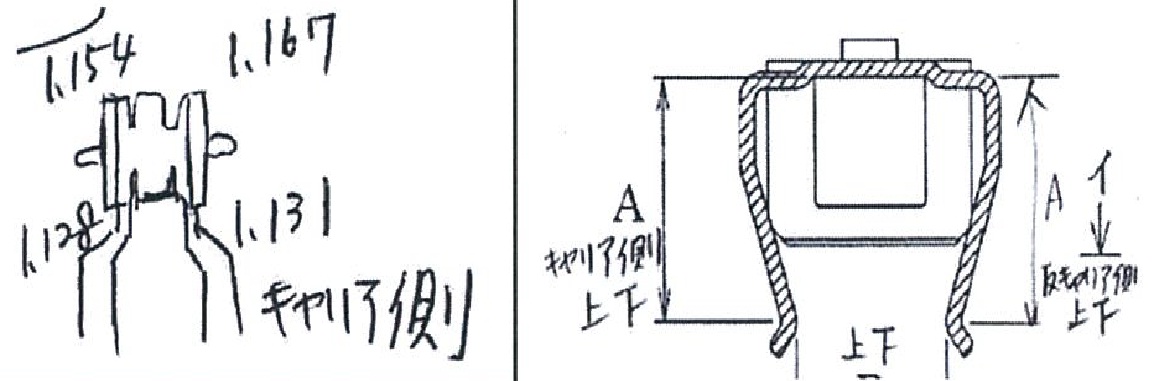 1.154
1.167
1.128
1.131
キャリア側
A
キャリア側
上下
A
イ
反キャリア側
上下
上下